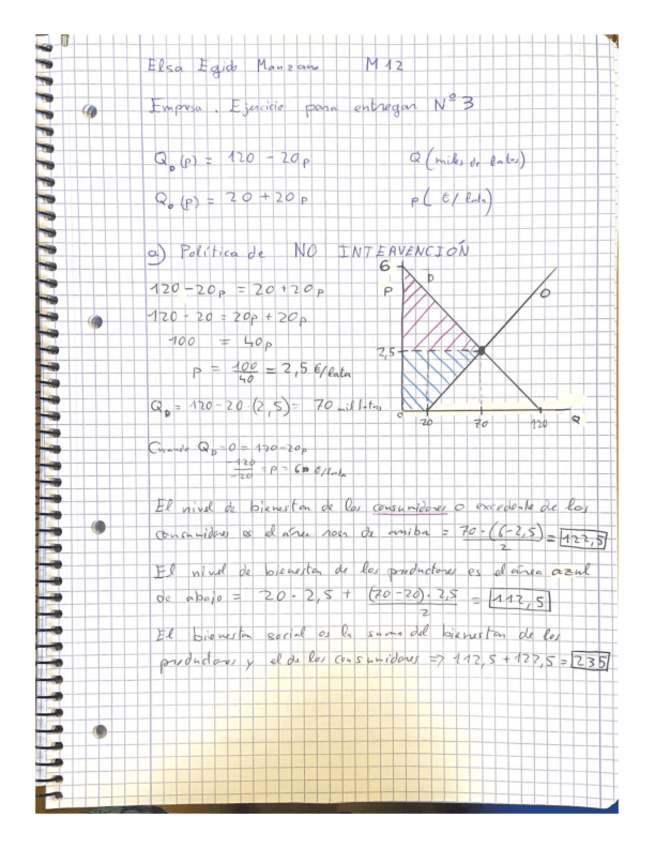 Elsa Egido Manzano M12
Empresa. Ejercicio para entregar Nº 3
Q_D (p) = 120 - 20p Q (miles de latas)
Q_o (p) = 20 + 20p p ( €/lata)
a) Política de NO INTERVENCIÓN
120 - 20p = 20 + 20p
120 - 20 = 20p + 20p
100 = 40p
p = 100/40 = 2,5 €/lata
Q_D = 120 - 20 · (2,5) = 70 mil latas
6
P
D
O
2,5
0 20 70 120 Q
Cuando Q_D = 0 = 120 - 20p
-120/-20 = p = 6 €/lata
El nivel de bienestar de los consumidores o excedente de los
consumidores es el área rosa de arriba = 70 · (6 - 2,5)/2 = 122,5
El nivel de bienestar de los productores es el área azul
de abajo = 20 · 2,5 + (70 - 20) · 2,5/2 = 112,5
El bienestar social es la suma del bienestar de los
productores y el de los consumidores => 112,5 + 122,5 = 235